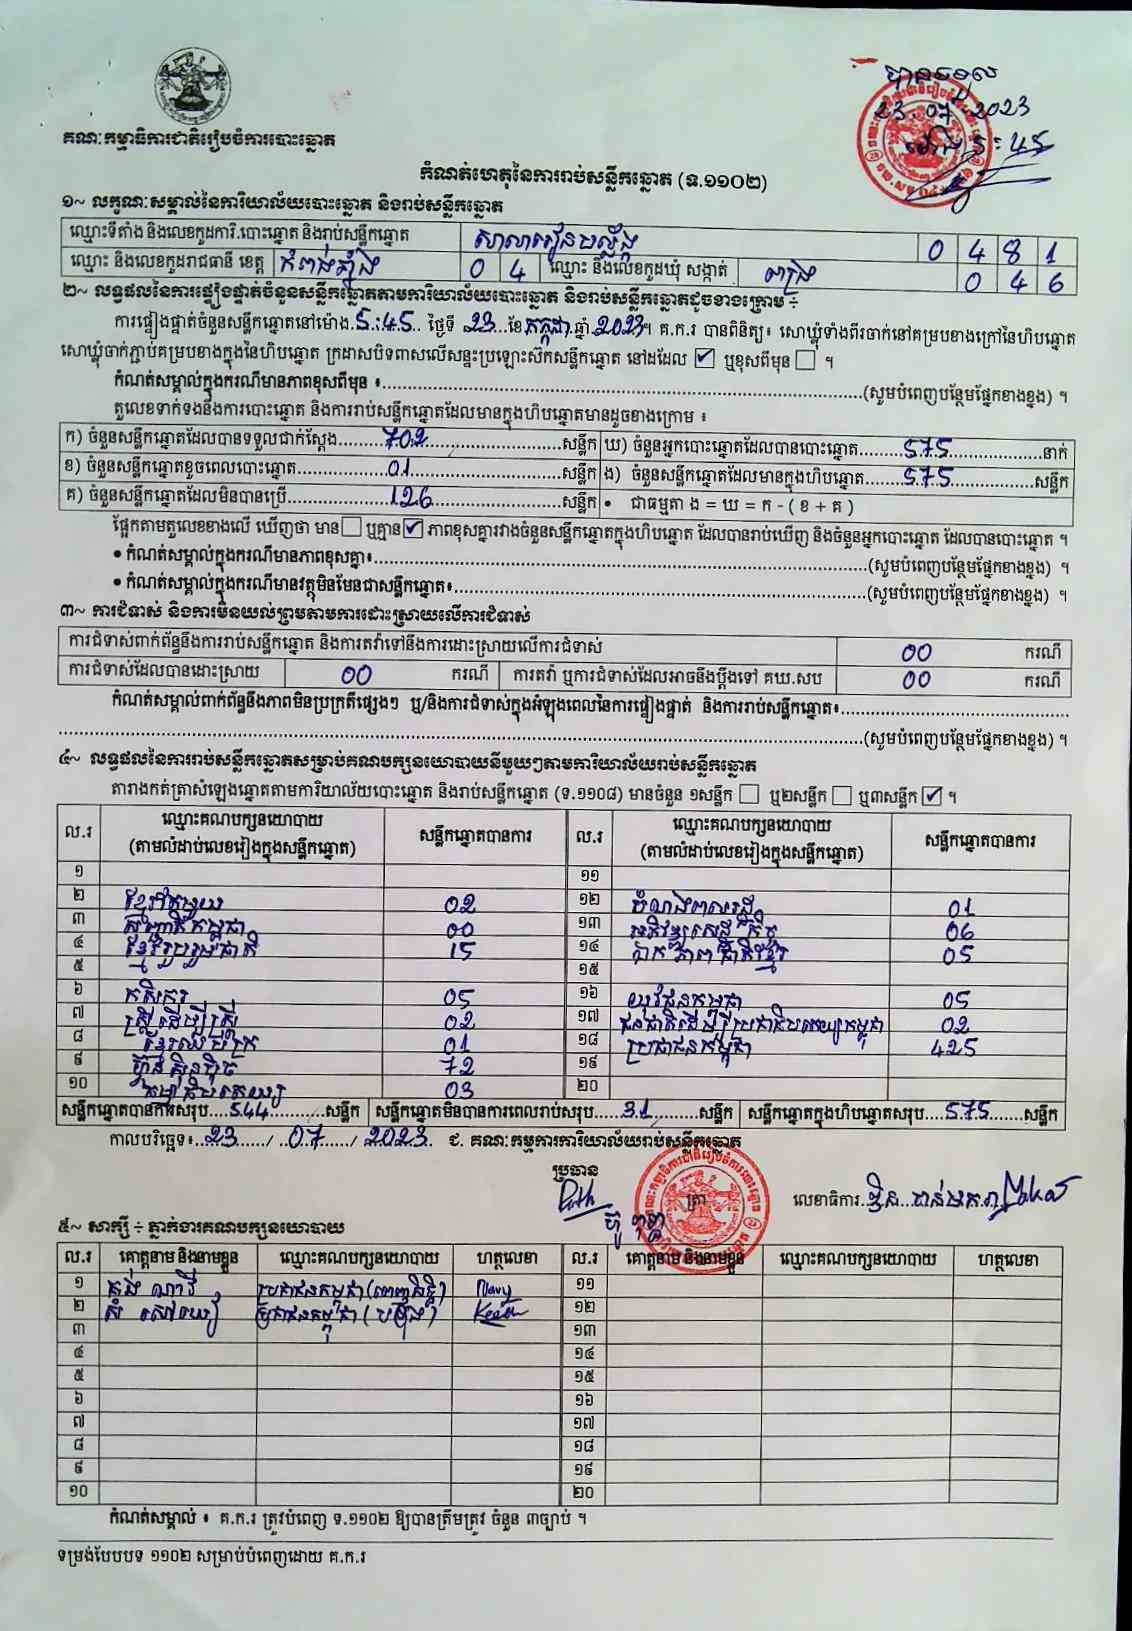 បានទទួល
23.07.2023
ម៉ោង 5:45
គណៈកម្មាធិការជាតិរៀបចំការបោះឆ្នោត
កំណត់ហេតុនៃការរាប់សន្លឹកឆ្នោត (ទ.១១០២)
១~ លក្ខណៈសម្គាល់នៃការិយាល័យបោះឆ្នោត និងរាប់សន្លឹកឆ្នោត
ឈ្មោះទីតាំង និងលេខកូដការិ.បោះឆ្នោត និងរាប់សន្លឹកឆ្នោត សាលារៀនបល្ល័ង្ក 0 4 8 1
ឈ្មោះ និងលេខកូដរាជធានី ខេត្ត កំពង់ឆ្នាំង 0 4 ឈ្មោះ និងលេខកូដឃុំ សង្កាត់ ពង្រ 0 4 6
២~ លទ្ធផលនៃការផ្ទៀងផ្ទាត់ចំនួនសន្លឹកឆ្នោតតាមការិយាល័យបោះឆ្នោត និងរាប់សន្លឹកឆ្នោតដូចខាងក្រោម ÷
ការផ្ទៀងផ្ទាត់ចំនួនសន្លឹកឆ្នោតនៅម៉ោង.5:45.. ថ្ងៃទី 23...ខែ កក្កដា.ឆ្នាំ 2023។ គ.ក.រ បានពិនិត្យ៖ សោឃ្លុំទាំងពីរចាក់នៅគម្របខាងក្រៅនៃហិបឆ្នោត
សោឃ្លុំចាក់ភ្ជាប់គម្របខាងក្នុងនៃហិបឆ្នោត ក្រដាសបិទពាសលើសន្ទះប្រឡោះស៊កសន្លឹកឆ្នោត នៅដដែល ☑ ឬខុសពីមុន ☐ ។
កំណត់សម្គាល់ក្នុងករណីមានភាពខុសពីមុន ៖..........(សូមបំពេញបន្ថែមផ្នែកខាងខ្នង) ។
តួលេខទាក់ទងនឹងការបោះឆ្នោត និងការរាប់សន្លឹកឆ្នោតដែលមានក្នុងហិបឆ្នោតមានដូចខាងក្រោម ៖
ក) ចំនួនសន្លឹកឆ្នោតដែលបានទទួលជាក់ស្ដែង.....702.....សន្លឹក ឃ) ចំនួនអ្នកបោះឆ្នោតដែលបានបោះឆ្នោត.....575.....នាក់
ខ) ចំនួនសន្លឹកឆ្នោតខូចពេលបោះឆ្នោត.....01.....សន្លឹក ង) ចំនួនសន្លឹកឆ្នោតដែលមានក្នុងហិបឆ្នោត.....575.....សន្លឹក
គ) ចំនួនសន្លឹកឆ្នោតដែលមិនបានប្រើ.....126.....សន្លឹក • ជាធម្មតា ង = ឃ = ក - ( ខ + គ )
ផ្អែកតាមតួលេខខាងលើ ឃើញថា មាន ☐ ឬគ្មាន ☑ ភាពខុសគ្នារវាងចំនួនសន្លឹកឆ្នោតក្នុងហិបឆ្នោត ដែលបានរាប់ឃើញ និងចំនួនអ្នកបោះឆ្នោត ដែលបានបោះឆ្នោត ។
• កំណត់សម្គាល់ក្នុងករណីមានភាពខុសគ្នា៖..........(សូមបំពេញបន្ថែមផ្នែកខាងខ្នង) ។
• កំណត់សម្គាល់ក្នុងករណីមានវត្ថុមិនមែនជាសន្លឹកឆ្នោត៖..........(សូមបំពេញបន្ថែមផ្នែកខាងខ្នង) ។
៣~ ការជំទាស់ និងការមិនយល់ព្រមតាមការដោះស្រាយលើការជំទាស់
ការជំទាស់ពាក់ព័ន្ធនឹងការរាប់សន្លឹកឆ្នោត និងការតវ៉ាទៅនឹងការដោះស្រាយលើការជំទាស់ 00 ករណី
ការជំទាស់ដែលបានដោះស្រាយ 00 ករណី ការតវ៉ា ឬការជំទាស់ដែលអាចនឹងប្ដឹងទៅ គឃ.សប 00 ករណី
កំណត់សម្គាល់ពាក់ព័ន្ធនឹងភាពមិនប្រក្រតីផ្សេងៗ ឬ/និងការជំទាស់ក្នុងអំឡុងពេលនៃការផ្ទៀងផ្ទាត់ និងការរាប់សន្លឹកឆ្នោត៖..........
..........(សូមបំពេញបន្ថែមផ្នែកខាងខ្នង) ។
៤~ លទ្ធផលនៃការរាប់សន្លឹកឆ្នោតសម្រាប់គណបក្សនយោបាយនីមួយៗតាមការិយាល័យរាប់សន្លឹកឆ្នោត
តារាងកត់ត្រាសំឡេងឆ្នោតតាមការិយាល័យបោះឆ្នោត និងរាប់សន្លឹកឆ្នោត (ទ.១១០៨) មានចំនួន ១សន្លឹក ☐ ឬ២សន្លឹក ☐ ឬ៣សន្លឹក ☑ ។
ល.រ ឈ្មោះគណបក្សនយោបាយ (តាមលំដាប់លេខរៀងក្នុងសន្លឹកឆ្នោត) សន្លឹកឆ្នោតបានការ ល.រ ឈ្មោះគណបក្សនយោបាយ (តាមលំដាប់លេខរៀងក្នុងសន្លឹកឆ្នោត) សន្លឹកឆ្នោតបានការ
១ ១១
២ ខ្មែរតែមួយ 02 ១២ បំណងពលរដ្ឋ 01
៣ សញ្ជាតិកម្ពុជា 00 ១៣ អភិវឌ្ឍសេដ្ឋកិច្ច 06
៤ ខ្មែររួបរួមជាតិ 15 ១៤ ឯកភាពជាតិខ្មែរ 05
៥ ១៥
៦ កសិករ 05 ១៦ យុវជនកម្ពុជា 05
៧ ស្ត្រីដើម្បីស្ត្រី 02 ១៧ ជនជាតិដើមប្រជាធិបតេយ្យកម្ពុជា 02
៨ ខ្មែរឈប់ក្រ 01 ១៨ ប្រជាជនកម្ពុជា 425
៩ ហ្វ៊ុនស៊ិនប៉ិច 72 ១៩
១០ ធម្មាធិបតេយ្យ 03 ២០
សន្លឹកឆ្នោតបានការសរុប....544....សន្លឹក សន្លឹកឆ្នោតមិនបានការពេលរាប់សរុប....31....សន្លឹក សន្លឹកឆ្នោតក្នុងហិបឆ្នោតសរុប....575....សន្លឹក
កាលបរិច្ឆេទ៖..23../..07../ 2023 ជ. គណៈកម្មការការិយាល័យរាប់សន្លឹកឆ្នោត
ប្រធាន ត្រា លេខាធិការ
៥~ សាក្សី ÷ ភ្នាក់ងារគណបក្សនយោបាយ
ល.រ គោត្តនាម និងនាមខ្លួន ឈ្មោះគណបក្សនយោបាយ ហត្ថលេខា ល.រ គោត្តនាម និងនាមខ្លួន ឈ្មោះគណបក្សនយោបាយ ហត្ថលេខា
១ គង់ ណាវី ប្រជាជនកម្ពុជា (ពេញសិទ្ធិ) Navy ១១
២ សំ សៅយៀ ប្រជាជនកម្ពុជា (បម្រុង) ១២
៣ ១៣
៤ ១៤
៥ ១៥
៦ ១៦
៧ ១៧
៨ ១៨
៩ ១៩
១០ ២០
កំណត់សម្គាល់ ៖ គ.ក.រ ត្រូវបំពេញ ទ.១១០២ ឱ្យបានត្រឹមត្រូវ ចំនួន ៣ច្បាប់ ។
ទម្រង់បែបបទ ១១០២ សម្រាប់បំពេញដោយ គ.ក.រ